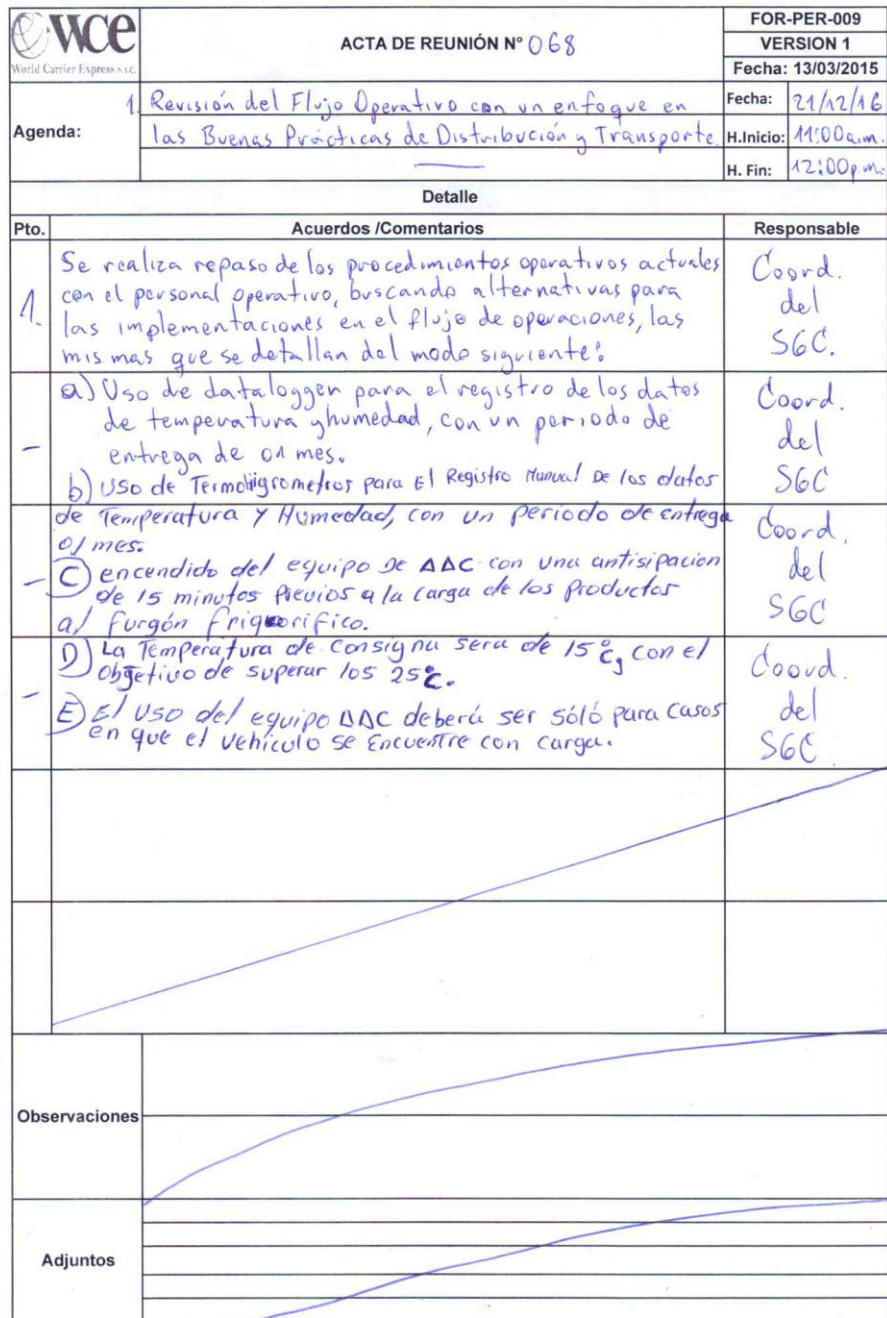 WCE
World Carrier Express S.A.C.
ACTA DE REUNIÓN N° 068
FOR-PER-009
VERSION 1
Fecha: 13/03/2015
Agenda:
1. Revisión del Flujo Operativo con un enfoque en
las Buenas Prácticas de Distribución y Transporte.
Fecha: 21/12/16
H.Inicio: 11:00a.m.
H. Fin: 12:00p.m.
Detalle
Pto. Acuerdos /Comentarios Responsable
1. Se realiza repaso de los procedimientos operativos actuales
con el personal operativo, buscando alternativas para
las implementaciones en el flujo de operaciones, las
mismas que se detallan del modo siguiente:
Coord.
del
SGC.
- a) Uso de datalogger para el registro de los datos
de temperatura y humedad, con un periodo de
entrega de 01 mes.
b) Uso de Termohigrometros para El Registro Manual De los datos
Coord.
del
SGC
de Temperatura Y Humedad, con un periodo de entrega
01 mes.
- C) encendido del equipo DE AAC con una antisipación
de 15 minutos Previos a la carga de los Productos
al furgón frigorifico.
Coord.
del
SGC
- D) La Temperatura de Consigna sera de 15°C, con el
Objetivo de superar los 25°C.
E) El USO del equipo AAC deberá ser sóló para Casos
en que el vehículo se Encuentre con carga.
Coord.
del
SGC
Observaciones
Adjuntos